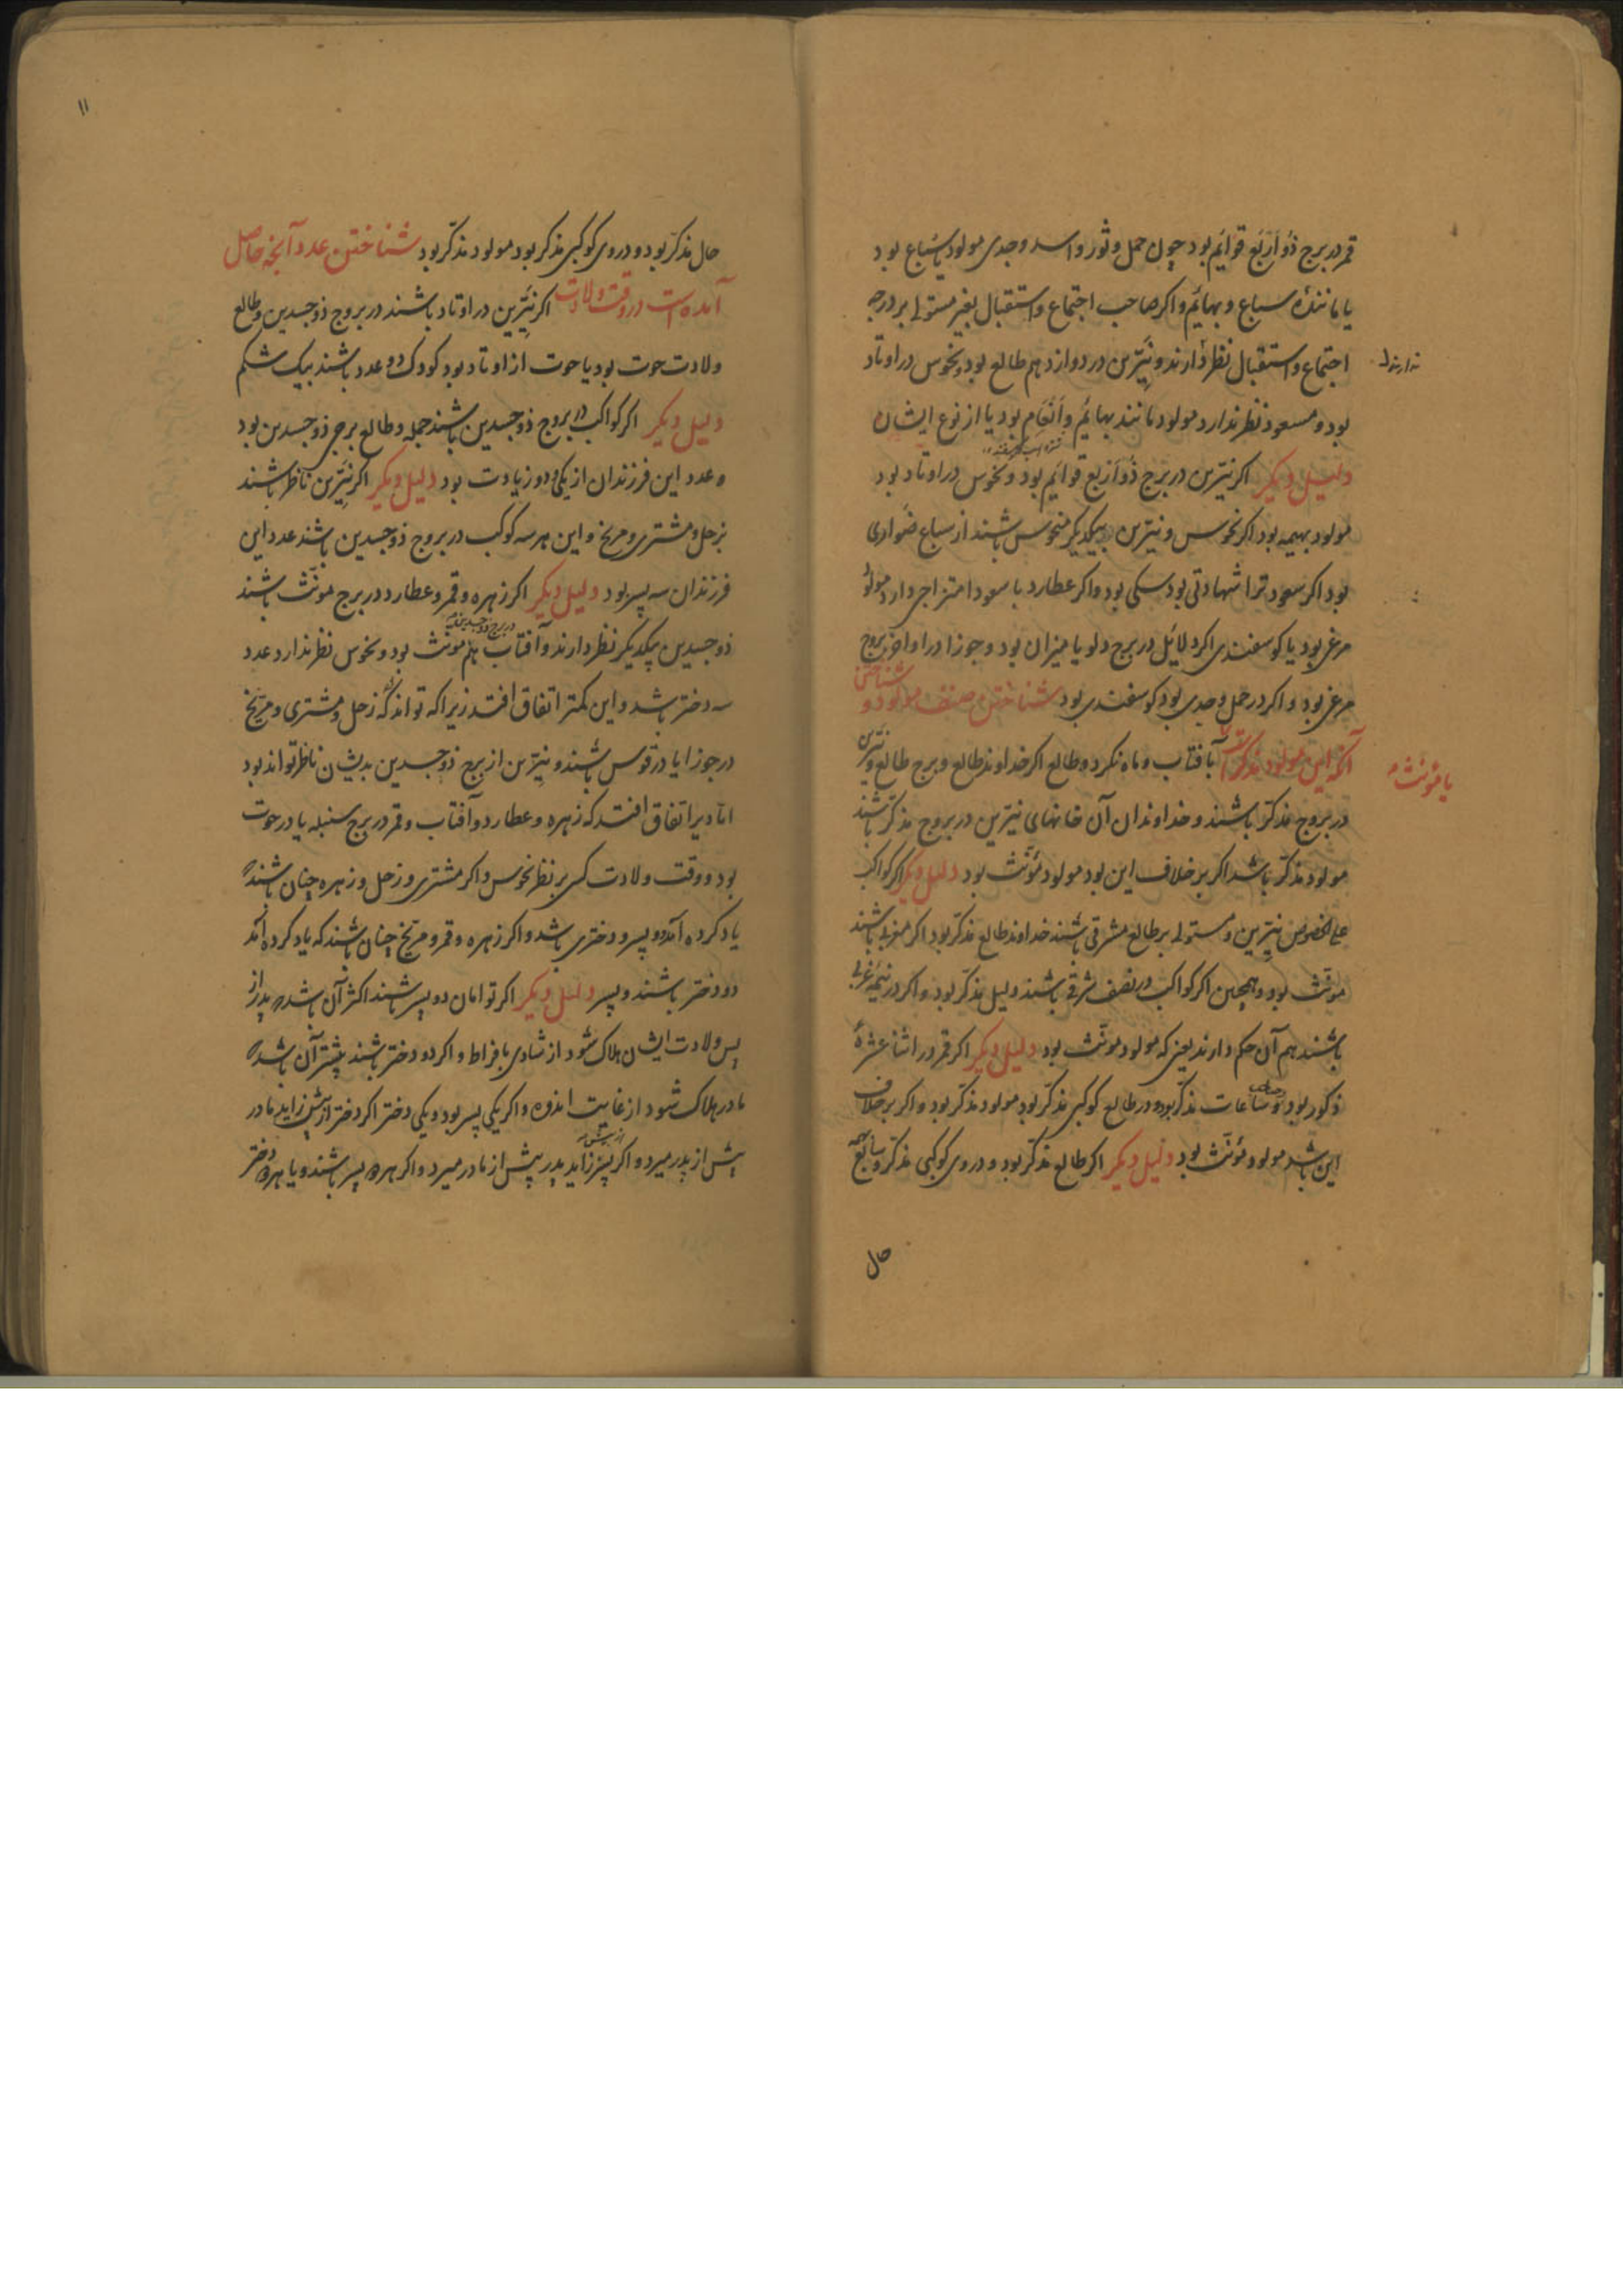 قمر در برج ذو اربع قوایم بود چون حمل و ثور و اسد و جدی مولود یا سباع بود
یا مانندهٔ سباع و بهایم و اکر صاحب اجتماع و استقبال بغیر مستولی بر درجه
اجتماع و استقبال نظر دارند و نیّرین در دوازدهم طالع بود و نحوس در اوتاد
ندارند
بود و مسعود نظر ندارد مولود مانند بهایم و انعام بود یا از نوع ایشان
دلیل دیکر اکر نیّرین در برج ذو اربع قوایم بود و نحوس در اوتاد بود
مولود بهیمه بود اکر نحوس و نیّرین بیکدیکر منحوس باشند از سباع ضواری
بود اکر سعود ترا شهادتی بود سکی بود و اکر عطارد با سعود امتزاجی دارد مولود
مرغی بود یا کوسفندی اکر دلایل در برج دلو یا میزان بود و جوزا در اواخر بروج
مرغی بود و اکر در حمل و جدی بود کوسفندی بود شناختن صنف مولود و شناختن
آنکه این مولود مذکر است بآفتاب و ماه نکرد و طالع اکر خداوند طالع و برج طالع و نیّرین
یا مؤنث
در بروج مذکّر باشند و خداوندان آن خانهای نیّرین در بروج مذکّر باشند
مولود مذکّر باشد اکر بر خلاف این بود مولود مؤنّث بود دلیل دیکر اکر کواکب
علی الخصوص نیّرین و مستولی بر طالع مشرقی باشند خداوند طالع مذکّر بود اکر مغربی باشند
مونّث بود و همچنین اکر کواکب در نصف شرقی باشند دلیل مذکّر بود و اکر در نیمه غربی
باشند هم آن حکم دارند یعنی که مولود مونّث بود دلیل دیکر اکر قمر در اثنا عشرهٔ
ذکور بود و صاحب ساعات مذکّر بود و در طالع کوکبی مذکّر بود مولود مذکّر بود و اکر بر خلاف
این باشد مولود مؤنّث بود دلیل دیکر اکر طالع مذکّر بود و در وی کوکبی مذکّر و
حال
۱۱
حال مذکّر بود و در وی کوکبی مذکر بود مولود مذکر بود شناختن عدد آنچه حاصل
آمده است در وقت ولادت اکر نیّرین در اوتاد باشند در بروج ذوجسدین و طالع
ولادت حوت بود یا حوت از اوتاد بود کودک دو عدد باشند بیک شکم
دلیل دیکر اکر کواکب در بروج ذوجسدین باشند جمله و طالع برج ذوجسدین بود
عدد این فرزندان از یکی و دو زیادت بود دلیل دیکر اکر نیّرین ناظر باشند
بزحل و مشتری و مریخ و این هر سه کوکب در بروج ذوجسدین باشند عدد این
فرزندان سه پسر بود دلیل دیکر اکر زهره و قمر و عطارد در برج مونّث باشند
ذوجسدین بیکدیکر نظر دارند و آفتاب هم مونث بود و نحوس نظر ندارد عدد
سه دختر باشد و این کمتر اتفاق افتد زیرا که تواند که زحل و مشتری و مریخ
در جوزا یا در قوس باشند و نیّرین از برج ذوجسدین بدیشان ناظر تواند بود
اما دیر اتفاق افتد که زهره و عطارد و آفتاب و قمر در برج سنبله یا در حوت
بود و وقت ولادت کسی بر نظر نحوس و اکر مشتری و زحل و زهره چنان باشند که
یاد کرده آمد دو پسر و دختری باشد و اکر زهره و قمر و مریخ چنان باشند که یاد کرده آمد
دو دختر باشند و پسر دلیل دیکر اکر توامان دو پسر باشند اکثر آن باشد که پدر از
پس ولادت ایشان هلاک شود از شادی بافراط و اکر دو دختر باشند بیشتر آن باشد که
مادر هلاک شود از غایت اندوه و اکر یکی پسر بود و یکی دختر اکر دختر از پیش زاید مادر
پیش از پدر میرد و اکر پسر از پیش زاید پدر پیش از مادر میرد و اکر هر دو پسر باشند و یا هر دو دختر